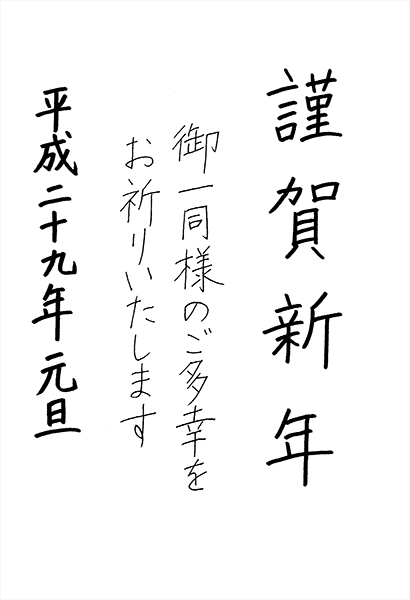 謹賀新年
御一同様のご多幸を
お祈りいたします
平成二十九年元旦